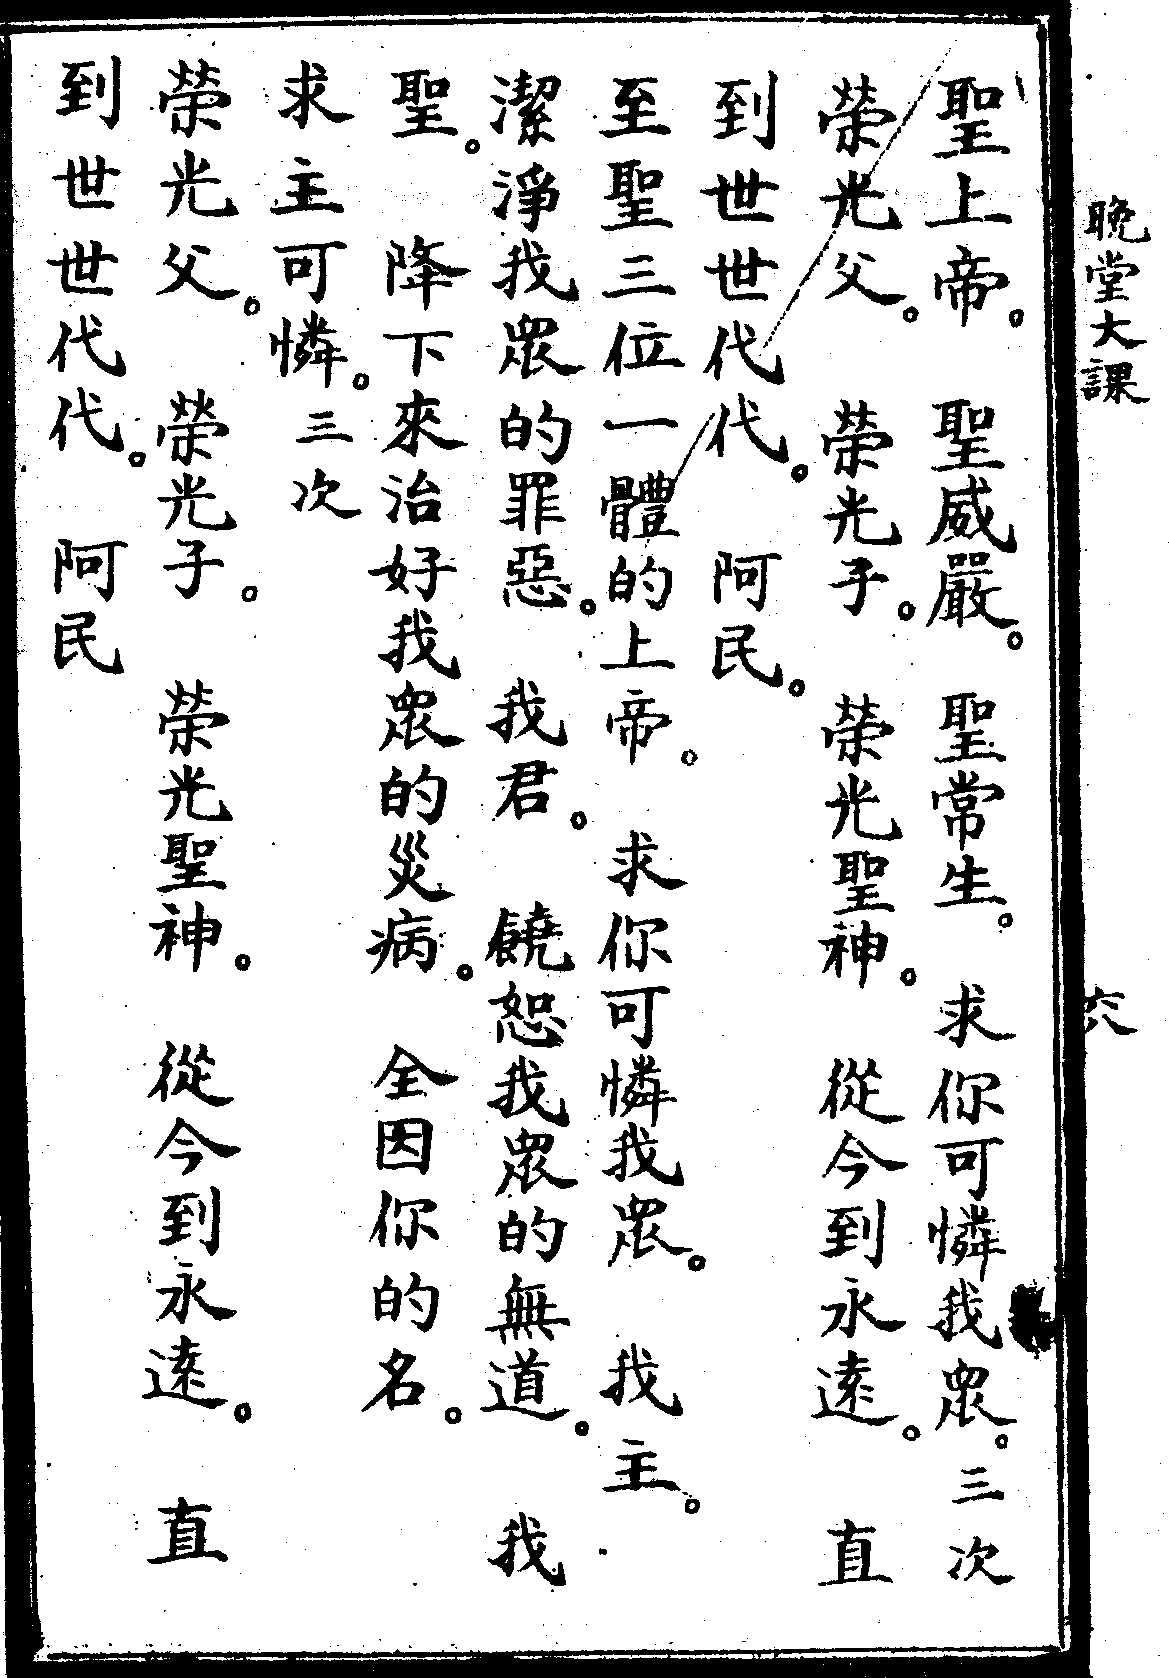 晚堂大課
六
聖上帝。 聖威嚴。 聖常生。 求你可憐我眾。三次
榮光父。 榮光子。 榮光聖神。 從今到永遠。 直
到世世代代。 阿民。
至聖三位一體的上帝。 求你可憐我眾。 我主。
潔淨我眾的罪惡。 我君。 饒恕我眾的無道。 我
聖。 降下來治好我眾的災病。 全因你的名。
求主可憐。三次
榮光父。 榮光子。 榮光聖神。 從今到永遠。 直
到世世代代。 阿民